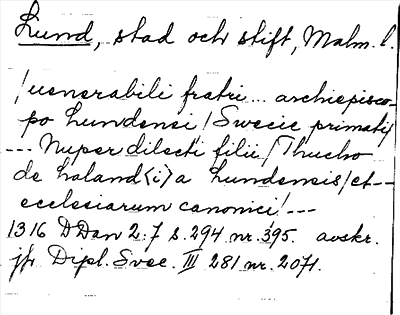 Lund, stad och stift, Malm. l.
/uenerabili fratri... archiepisco-
po Lundensi/Swecie primati/
--- Nuper dilecti filii/Thucho
de haland<i>a Lundensis/et--
ecclesiarum canonici/---
1316 DDan 2:7 s.294 nr.395. avskr.
jfr Dipl. Svec. III 281 nr. 2071.